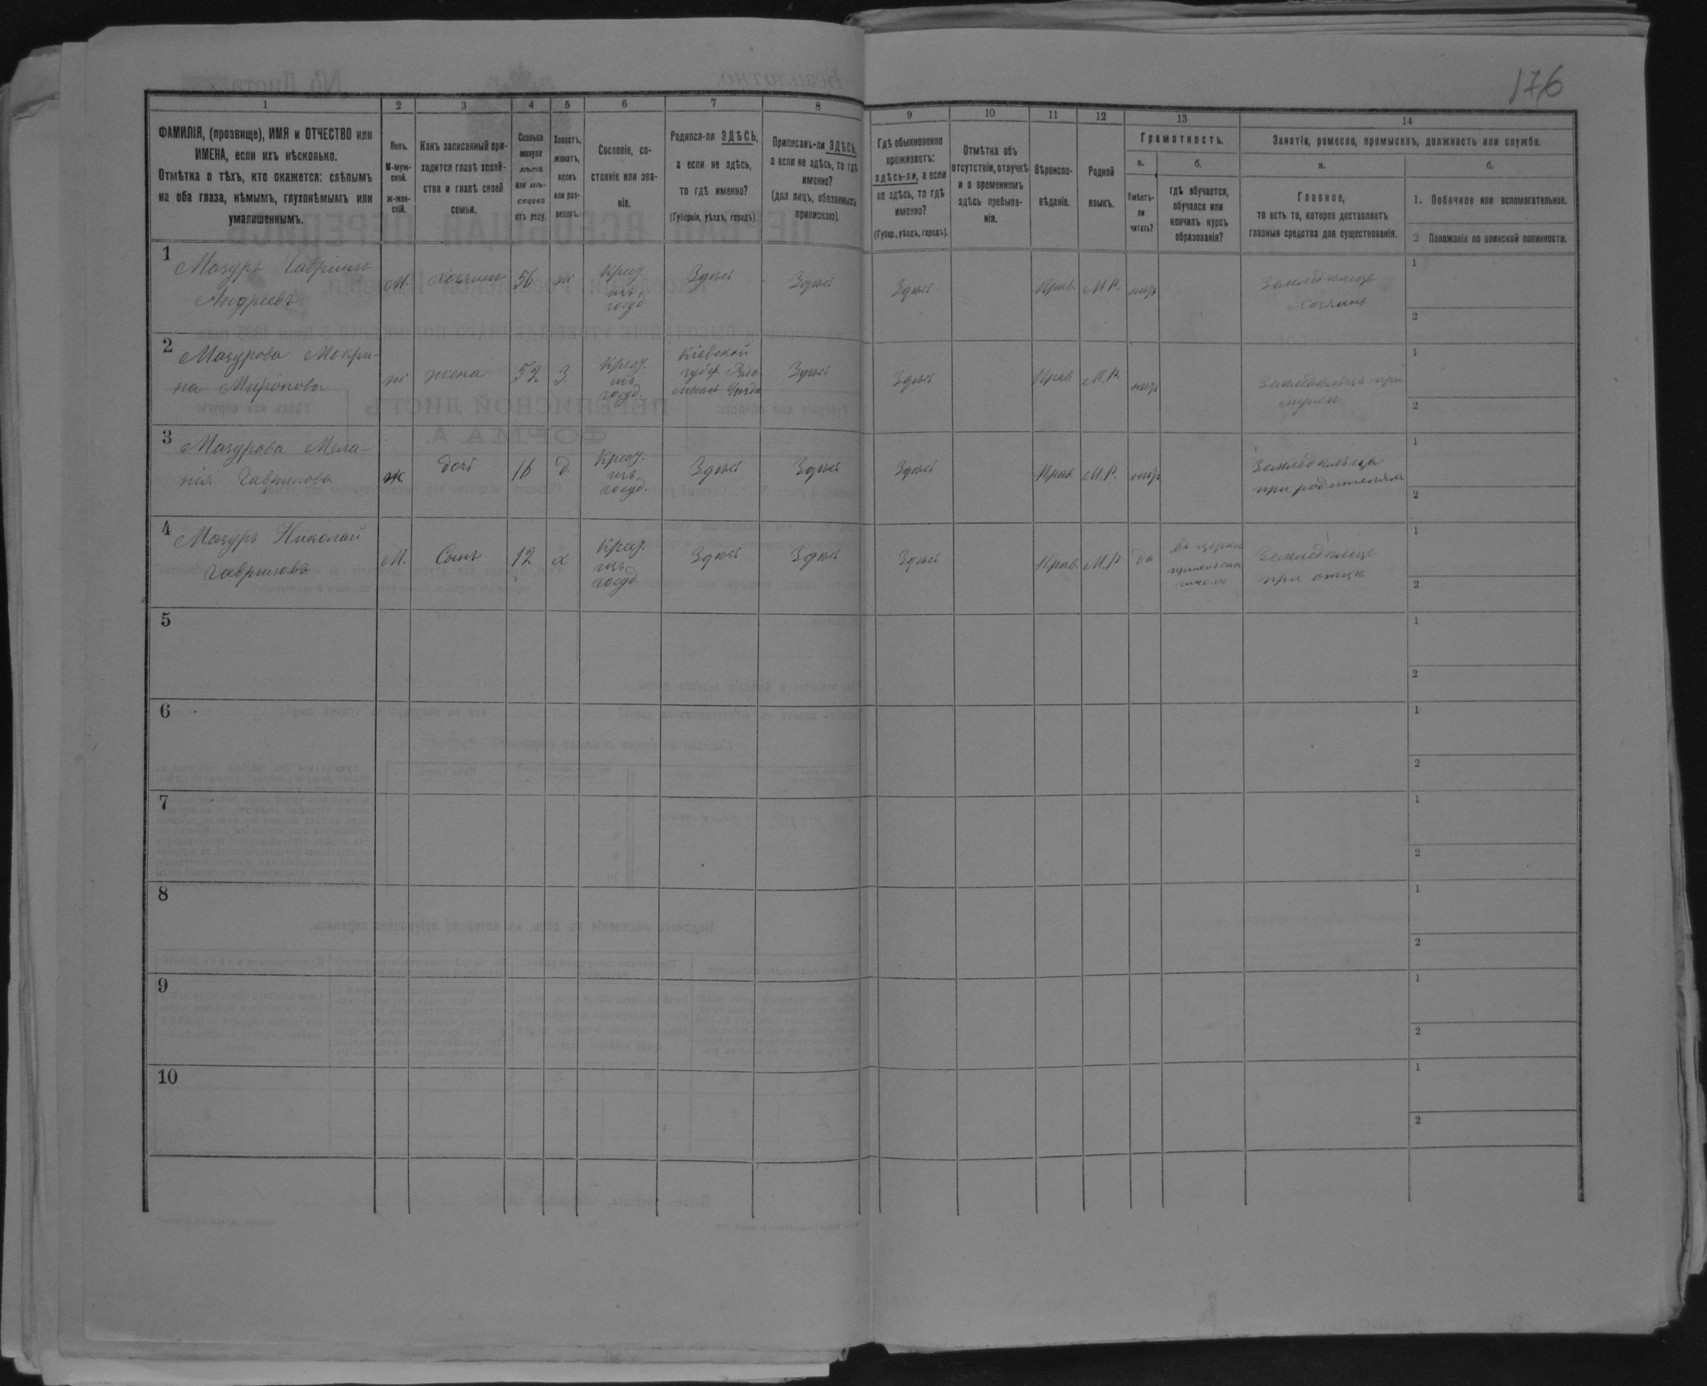 176
1
2
3
4
5
6
7
8
9
10
11
12
13
14
ФАМИЛІЯ, (прозвище), ИМЯ и ОТЧЕСТВО или
ИМЕНА, если ихъ нѣсколько.
Отмѣтка о тѣхъ, кто окажется: слѣпымъ
на оба глаза, нѣмымъ, глухонѣмымъ или
умалишеннымъ.
Полъ.
М-муж-
ской.
Ж-жен-
скій.
Какъ записанный при-
ходится главѣ хозяй-
ства и главѣ своей
семьи.
Сколько
минуло
лѣтъ
или мѣ-
сяцевъ
отъ роду.
Холостъ,
женатъ,
вдовъ
или раз-
веденъ.
Сословіе, со-
стояніе или зва-
ніе.
Родился-ли ЗДѢСЬ,
а если не здѣсь,
то гдѣ именно?
(Губернія, уѣздъ, городъ).
Приписанъ-ли ЗДѢСЬ,
а если не здѣсь, то гдѣ
именно?
(для лицъ, обязанныхъ
припискою).
Гдѣ обыкновенно
проживаетъ:
здѣсь-ли, а если
не здѣсь, то гдѣ
именно?
(Губер., уѣздъ, городъ).
Отмѣтка объ
отсутствіи, отлучкѣ
и о временномъ
здѣсь пребыва-
ніи.
Вѣроиспо-
вѣданіе.
Родной
языкъ.
Грамотность.
а.
б.
Умѣетъ-
ли
читать?
гдѣ обучается,
обучался или
кончилъ курсъ
образованія?
Занятія, ремесло, промыселъ, должность или служба.
а.
б.
Главное,
то есть то, которое доставляетъ
главныя средства для существованія.
1. Побочное или вспомогательное.
2 Положеніе по воинской повинности.
1
Мазуръ Гавріилъ
Андреевъ
М.
Хозяинъ
56
ж
Крест.
изъ
госуд.
Здѣсь
Здѣсь
Здѣсь
Прав.
М.Р.
нѣтъ
Земледѣлецъ
Хозяинъ
1
2
2
Мазурова Мокри-
на Миронова
ж
жена
52
З.
Крест.
изъ
госуд.
Кіевской
губер.
Уѣзда
Здѣсь
Здѣсь
Прав.
М.Р.
нѣтъ
Земледѣлица при
мужѣ
1
2
3
Мазурова Мела-
нія Гаврилова
ж
дочь
16
д.
Крест.
изъ
госуд.
Здѣсь
Здѣсь
Здѣсь
Прав.
М.Р.
нѣтъ
Земледѣлица
при родителяхъ
1
2
4
Мазуръ Николай
Гавриловъ
М.
Сынъ
12
х
Крест.
изъ
госуд.
Здѣсь
Здѣсь
Здѣсь
Прав.
М.Р
да
въ церков
приходской
школѣ
Земледѣлецъ
при отцѣ
1
2
5
1
2
6
1
2
7
1
2
8
1
2
9
1
2
10
1
2